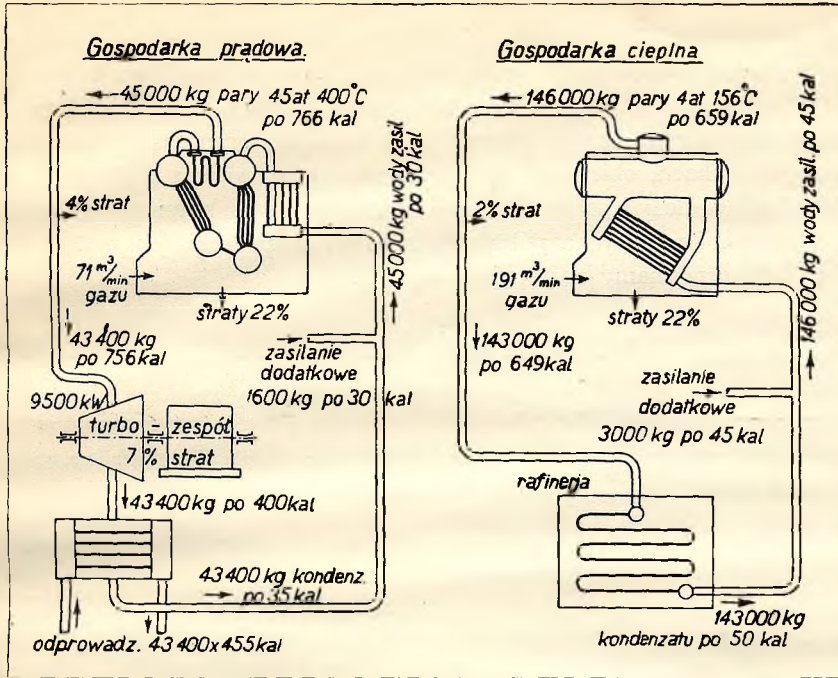 Gospodarka prądowa.
45000 kg pary 45at 400°C
po 766 kal
4% strat
71 m³/min
gazu
straty 22%
45000 kg wody zasil.
po 30 kal
43400 kg
po 756 kal
zasilanie
dodatkowe
1600 kg po 30 kal
9500 kW
turbo - zespół
7% strat
43400 kg po 400 kal
43400 kg kondenz.
po 35 kal
odprowadz. 43400x455kal
Gospodarka cieplna
146000 kg pary 4at 156°C
po 659 kal
2% strat
191 m³/min
gazu
straty 22%
146000 kg wody zasil. po 45 kal
143000 kg
po 649 kal
zasilanie
dodatkowe
3000 kg po 45 kal
rafineria
143000 kg
kondenzatu po 50 kal